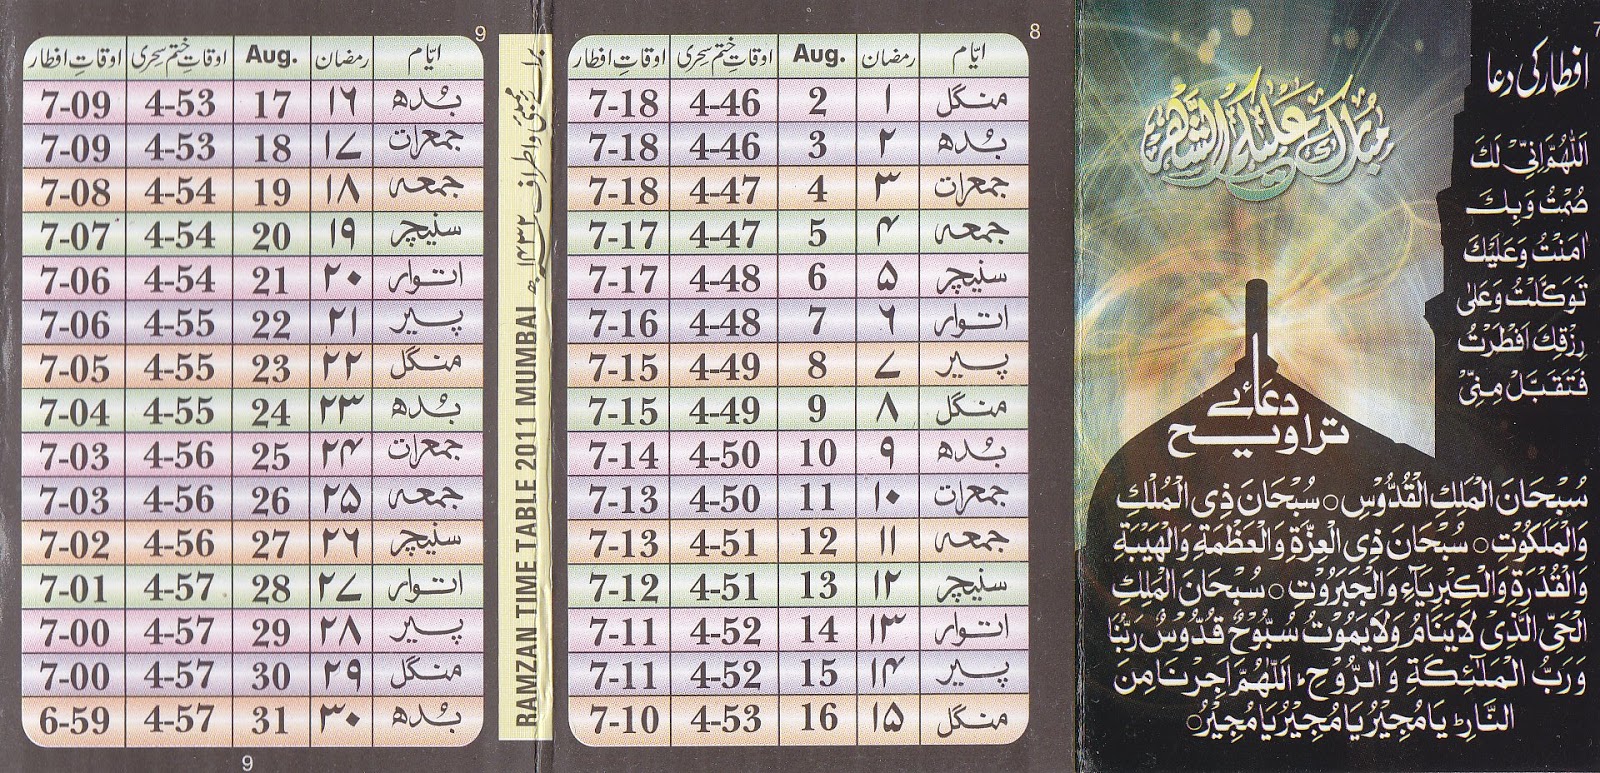 7
افطار کی دعا
اَللّٰهُمَّ اِنِّیْ لَكَ
صُمْتُ وَبِكَ
اٰمَنْتُ وَعَلَيْكَ
تَوَكَّلْتُ وَعَلٰى
رِزْقِكَ اَفْطَرْتُ
فَتَقَبَّلْ مِنِّیْ
مُبارك عليكم الشهر
دعائے
تراویح
سُبْحَانَ الْمَلِكِ الْقُدُّوْسِ ○ سُبْحَانَ ذِی الْمُلْكِ
وَالْمَلَكُوْتِ ○ سُبْحَانَ ذِی الْعِزَّةِ وَالْعَظْمَةِ وَالْهَيْبَةِ
وَالْقُدْرَةِ وَالْكِبْرِيَآءِ وَالْجَبَرُوْتِ ○ سُبْحَانَ الْمَلِكِ
الْحَیِّ الَّذِیْ لَا يَنَامُ وَلَا يَمُوْتُ سُبُّوْحٌ قُدُّوْسٌ رَبُّنَا
وَرَبُّ الْمَلٰٓئِكَةِ وَالرُّوْحِ، اَللّٰهُمَّ اَجِرْنَا مِنَ
النَّارِ يَا مُجِيْرُ يَا مُجِيْرُ يَا مُجِيْرُ ○
8
ایّام رمضان Aug. اوقاتِ ختم سحری اوقاتِ افطار
منگل ۱ 2 4-46 7-18
بُدھ ۲ 3 4-46 7-18
جمعرات ۳ 4 4-47 7-18
جمعہ ۴ 5 4-47 7-17
سنیچر ۵ 6 4-48 7-17
اتوار ۶ 7 4-48 7-16
پیر ۷ 8 4-49 7-15
منگل ۸ 9 4-49 7-15
بُدھ ۹ 10 4-50 7-14
جمعرات ۱۰ 11 4-50 7-13
جمعہ ۱۱ 12 4-51 7-13
سنیچر ۱۲ 13 4-51 7-12
اتوار ۱۳ 14 4-52 7-11
پیر ۱۴ 15 4-52 7-11
منگل ۱۵ 16 4-53 7-10
برائے ممبئی و اطراف ۱۴۳۲ھ
RAMZAN TIME TABLE 2011 MUMBAI
9
ایّام رمضان Aug. اوقاتِ ختم سحری اوقاتِ افطار
بُدھ ۱۶ 17 4-53 7-09
جمعرات ۱۷ 18 4-53 7-09
جمعہ ۱۸ 19 4-54 7-08
سنیچر ۱۹ 20 4-54 7-07
اتوار ۲۰ 21 4-54 7-06
پیر ۲۱ 22 4-55 7-06
منگل ۲۲ 23 4-55 7-05
بُدھ ۲۳ 24 4-55 7-04
جمعرات ۲۴ 25 4-56 7-03
جمعہ ۲۵ 26 4-56 7-03
سنیچر ۲۶ 27 4-56 7-02
اتوار ۲۷ 28 4-57 7-01
پیر ۲۸ 29 4-57 7-00
منگل ۲۹ 30 4-57 7-00
بُدھ ۳۰ 31 4-57 6-59
9